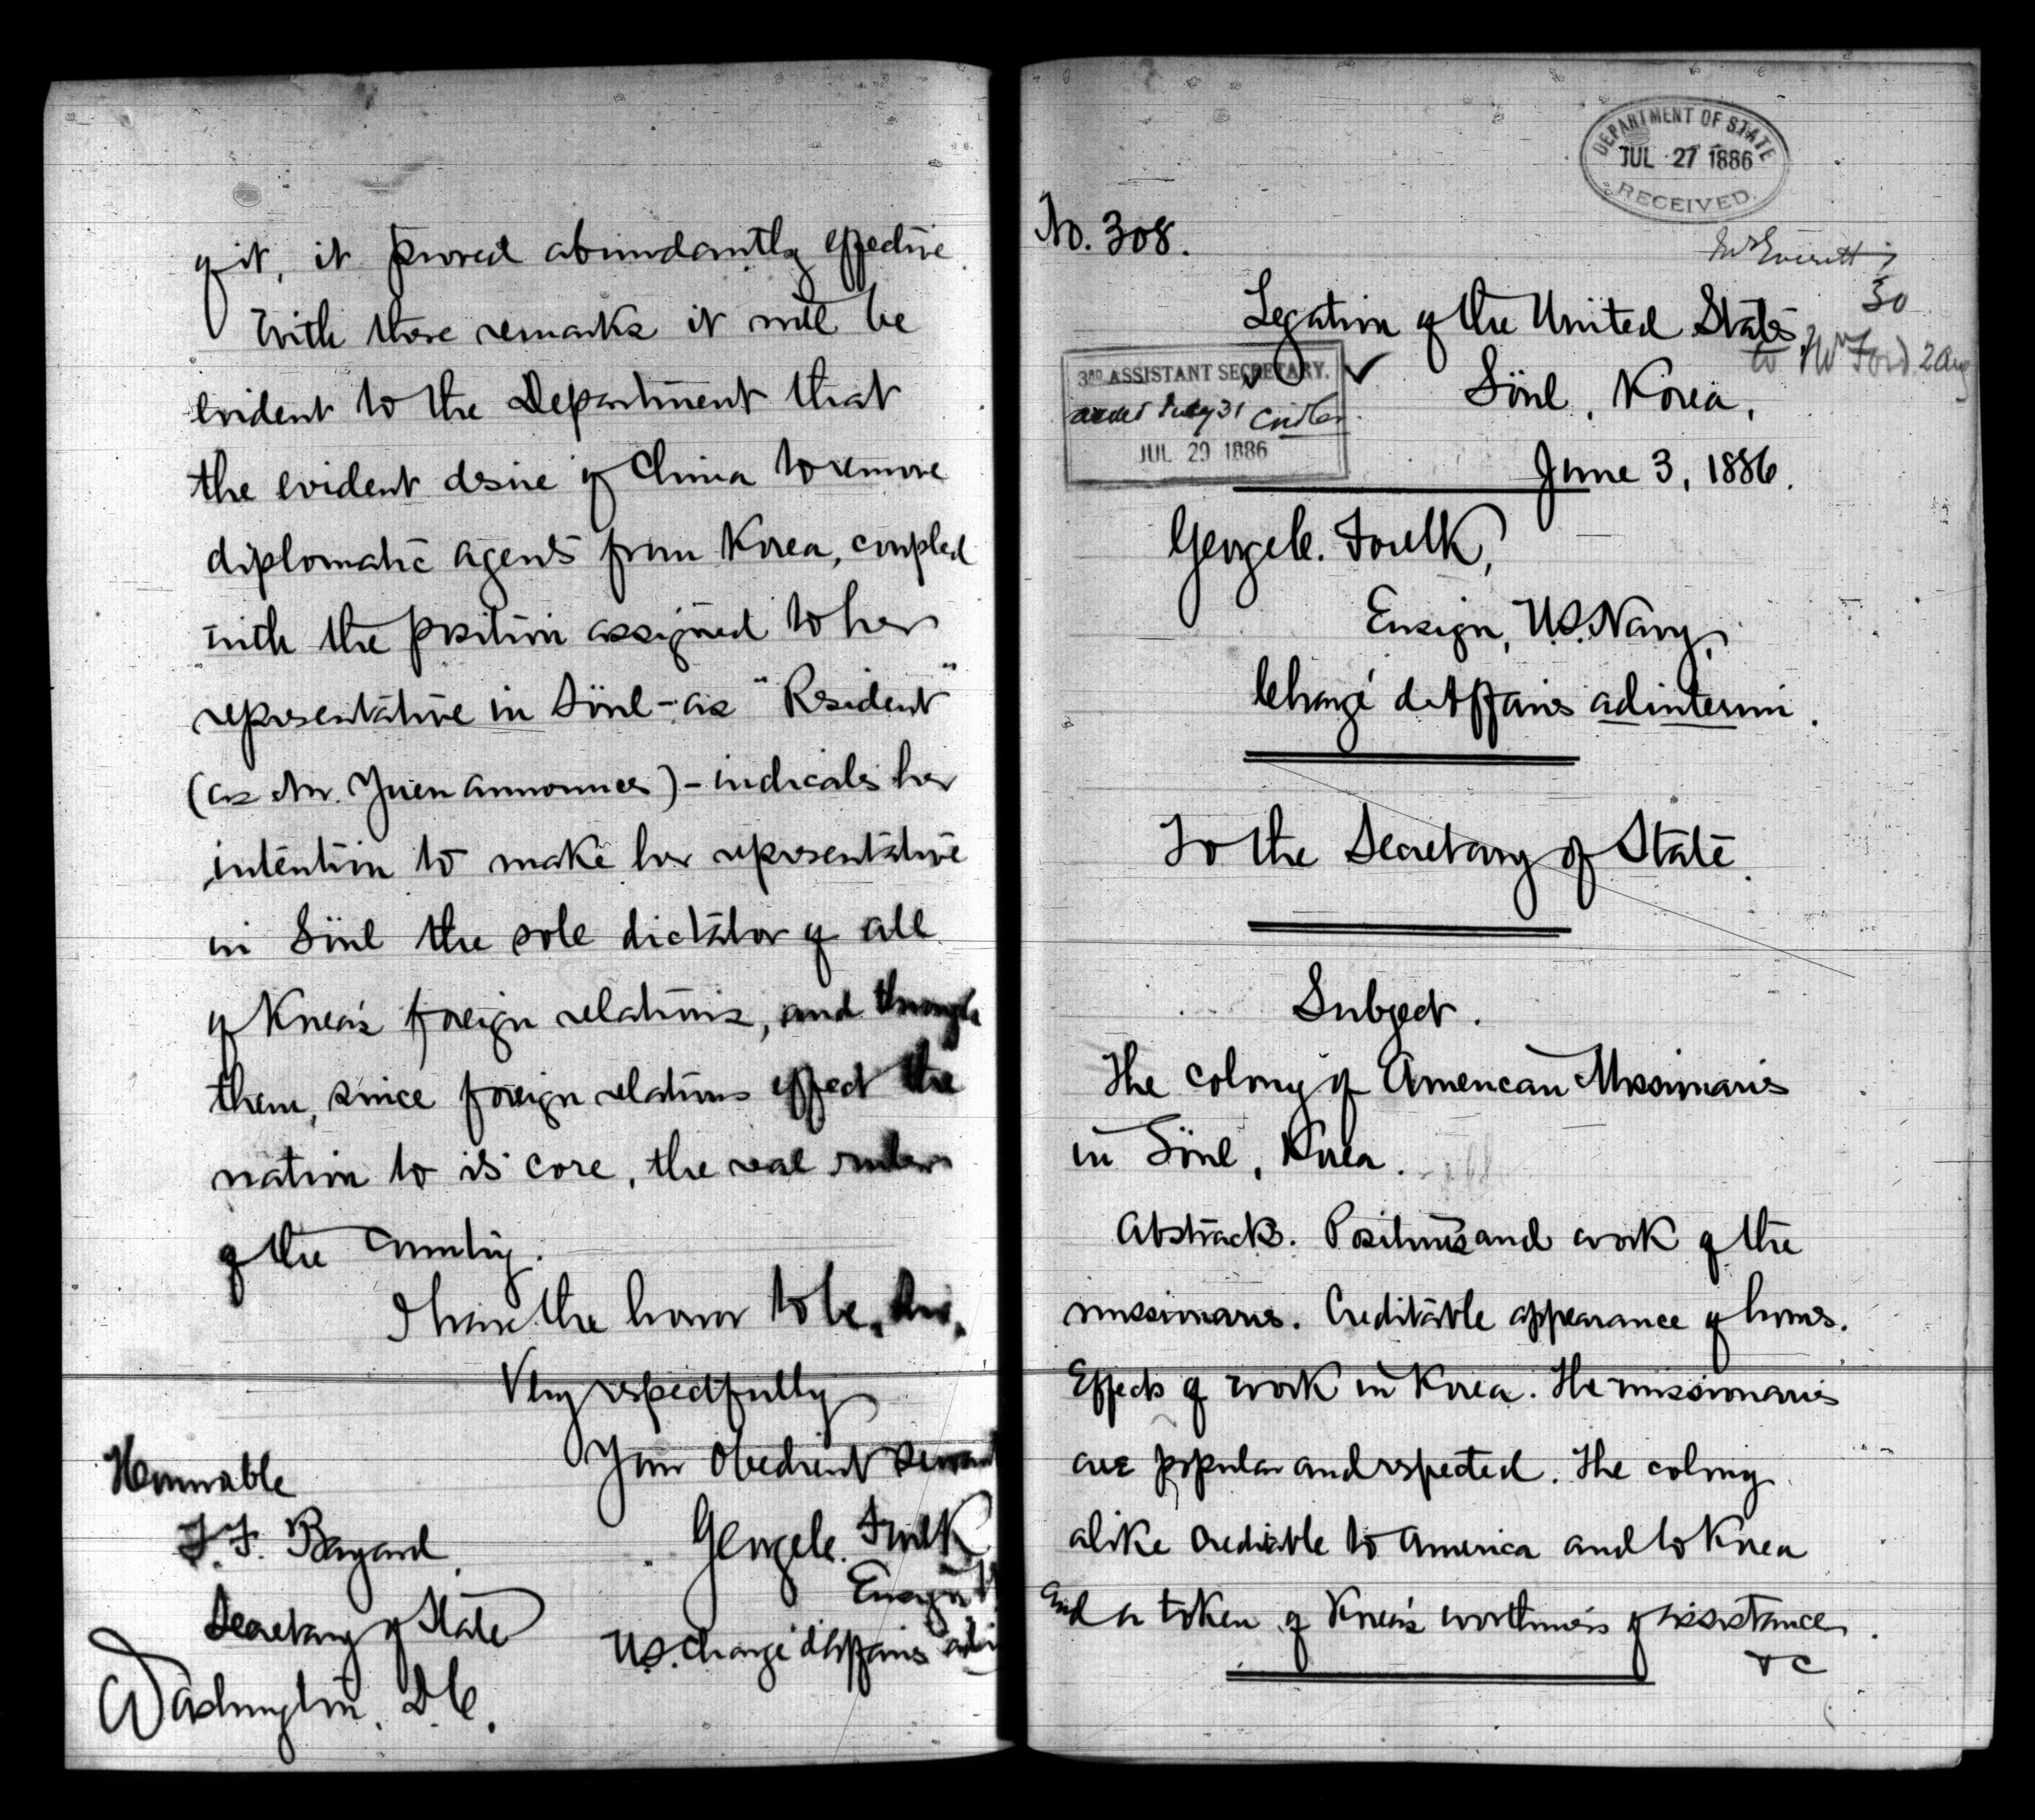 of it, it proved abundantly effective.
With these remarks it will be
evident to the Department that
the evident desire of China to remove
diplomatic agents from Korea, coupled
with the position assigned to her
representative in Söul - as "Resident"
(as Mr. Yuen announces) - indicates her
intention to make her representative
in Söul the sole dictator of all
of Korea's foreign relations, and through
them, since foreign relations effect the
nation to its core, the real ruler
of the Country.
I have the honor to be, Sir,
Very respectfully
Your Obedient Servant
George C. Foulk
Ensign
U.S. Chargé d'Affaires ad i
Honorable
T. F. Bayard,
Secretary of State
Washington, D.C.
DEPARTMENT OF STATE
JUL 27 1886
RECEIVED.
No. 308.
Mr Everett
30
to Mr Ford 2 Aug
Legation of the United States,
Söul, Korea,
June 3, 1886.
3RD ASSISTANT SECRETARY.
July 31
JUL 29 1886
George C. Foulk,
Ensign, U.S. Navy,
Chargé d'Affaires ad interim.
To the Secretary of State.
Subject.
The colony of American Missionaries
in Söul, Korea.
Abstract. Positions and work of the
missionaries. Creditable appearance of homes.
Effects of work in Korea. The missionaries
are popular and respected. The colony
alike creditable to America and to Korea
and a token of Korea's worthiness of assistance.
&c